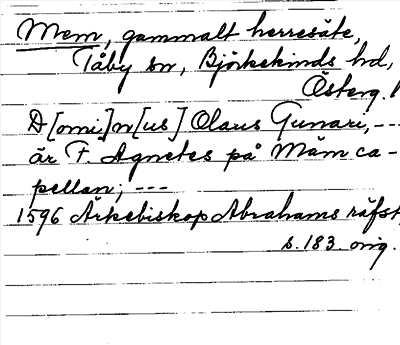 Mem, gammalt herresäte,
Tåby sn, Björkekinds hd,
Österg. l
D[omi]n[us] Olaus Gunari, ---
är F. Agnetes på Mäm ca-
pellan; ---
1596 Ärkebiskop Abrahams räfst,
s. 183. orig.